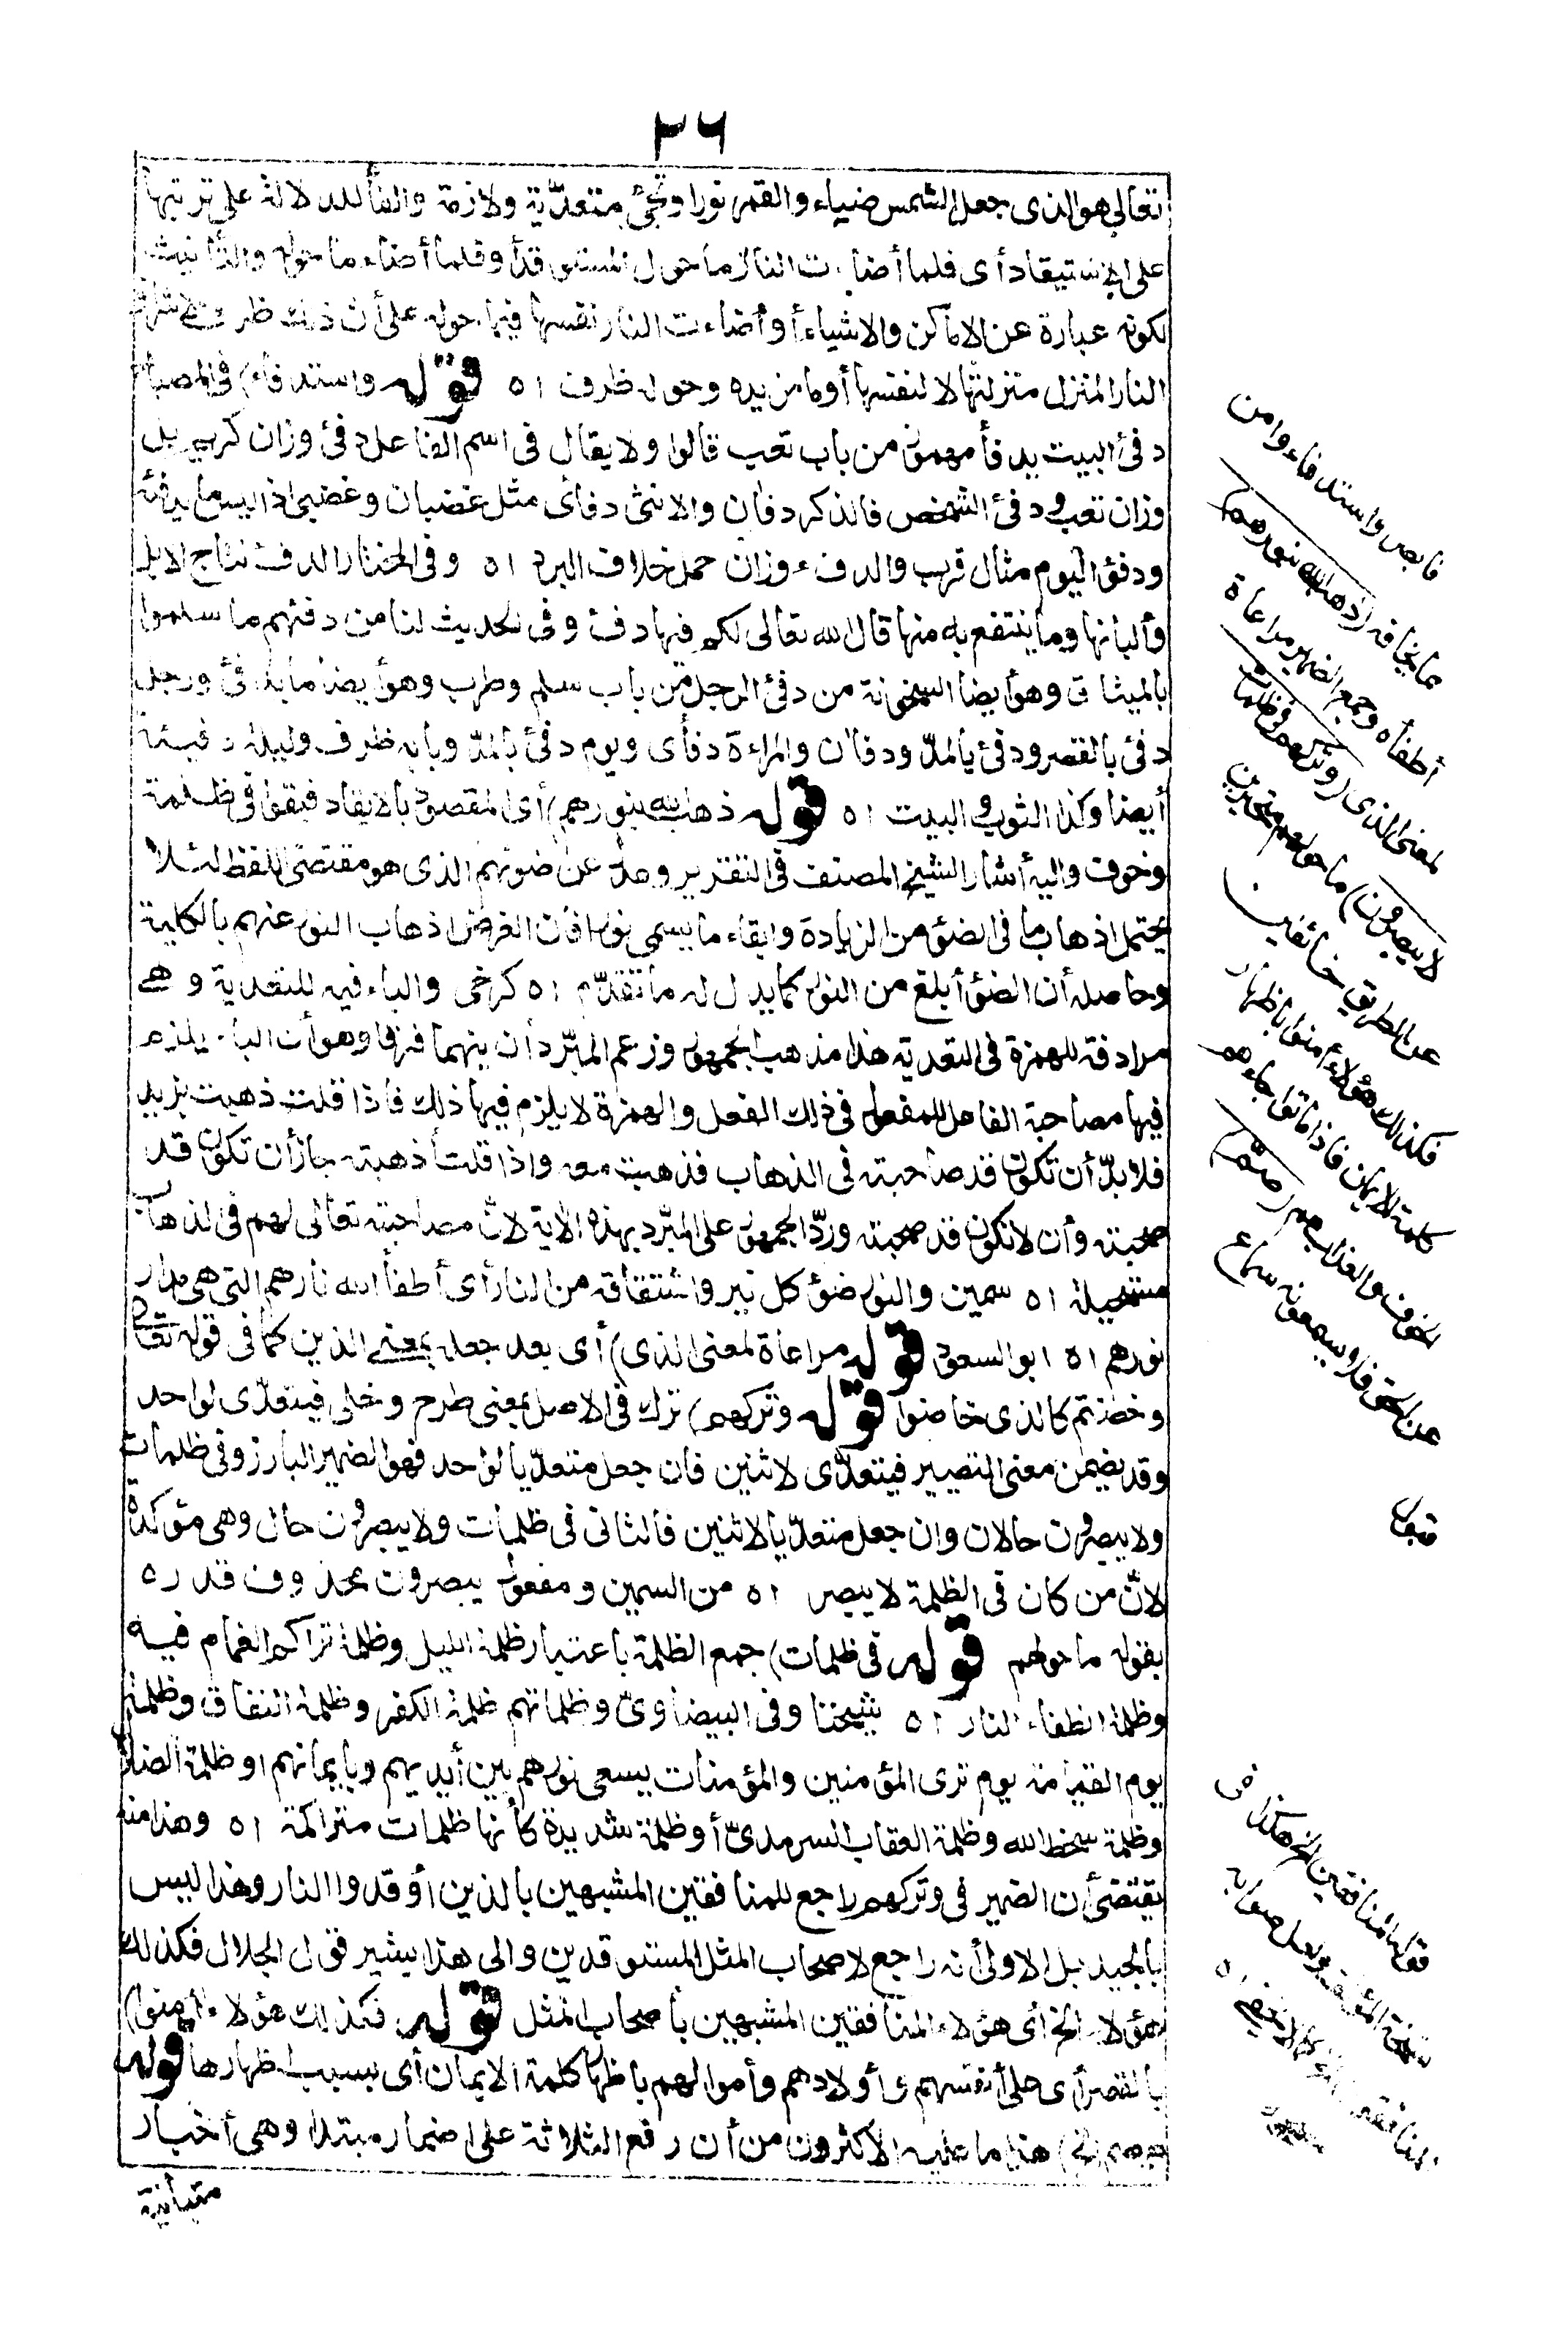 ٢٦
تعالى هو الذى جعل الشمس ضياء والقمر نورا وتجئ متعدّية ولازمة والفاء للدلالة على ترتبها
على الاستيقاد أى فلما أضاءت النار ما حول المستوقد أو فلما أضاء ما حوله والتأنيث
لكونه عبارة عن الاماكن والاشياء أو أضاءت النار نفسها فيما حوله على أن ذلك ظرف
النار المنزل منزلتها لا لنفسها أو ما مزيده وحوله ظرف اه قوله واستدفاء) فى المصباح
دفئ البيت يدفأ مهموز من باب تعب قالوا ولا يقال فى اسم الفاعل دفئ وزان كريم بل
وزان تعب ودفئ الشخص فالذكر دفان والانثى دفأى مثل غضبان وغضبى اذا لبس ما يدفئه
ودفؤ اليوم مثال قرب والدفء وزان حمل خلاف البرد اه وفى المختار الدفء نتاج الابل
وألبانها وما ينتفع به منها قال الله تعالى لكم فيها دفء وفى الحديث لنا من دفئهم ما سلموا
بالميثاق وهو أيضا السخونة من دفئ الرجل من باب سلم وطرب وهو أيضا ما يدفئ ورجل
دفئ بالقصر ودفئ بالمدّ ودفان والمراءة دفأى ويوم دفئ بالمدّ وبابه ظرف وليلة دفيئة
أيضا وكذا الثوب والبيت اه قوله ذهب الله بنورهم) أى المقصود بالايقاد فبقوا فى ظلمة
وخوف واليه أشار الشيخ المصنف فى التقرير وعدل عن ضوئهم الذى هو مقتضى اللفظ لئلا
يحتمل اذهاب ما فى الضوء من الزيادة وابقاء ما يسمى نورا فان الغرض اذهاب النور عنهم بالكلية
وحاصله أن الضوء أبلغ من النور كما يدل له ما تقدّم اه كرخى والباء فيه للتعدية وهى
مرادفة للهمزة فى التعدية هذا مذهب الجمهور وزعم المبرّد أن بينهما فرقا وهو أن الباء يلزم
فيها مصاحبة الفاعل للمفعول فى ذلك الفعل والهمزة لا يلزم فيها ذلك فاذا قلت ذهبت بزيد
فلا بدّ أن تكون قد صاحبته فى الذهاب فذهبت معه واذا قلت أذهبته جاز أن تكون قد
صحبته وأن لا تكون قد صحبته وردّ الجمهور على المبرّد بهذه الآية لانّ مصاحبته تعالى لهم فى الذهاب
مستحيلة اه سمين والنور ضوء كل نير واشتقاقه من النار أى أطفأ الله نارهم التى هى مدار
نورهم اه ابو السعود قوله مراعاة لمعنى الذى) أى بعد جعله بمعنى الذين كما فى قوله تعالى
وخضتم كالذى خاضوا قوله وتركهم) ترك فى الاصل بمعنى طرح وخلى فيتعدّى لواحد
وقد يضمن معنى التصيير فيتعدّى لاثنين فان جعل متعدّيا لواحد فهو الضمير البارز وفى ظلمات
ولا يبصرون حالان وان جعل متعدّيا لاثنين فالثانى فى ظلمات ولا يبصرون حال وهى مؤكدة
لانّ من كان فى الظلمة لا يبصر اه من السمين ومفعول يبصرون محذوف قدره
بقوله ما حولهم قوله فى ظلمات) جمع الظلمة باعتبار ظلمة الليل وظلمة تراكم الغمام فيه
وظلمة انطفاء النار اه شيخنا وفى البيضاوىّ وظلماتهم ظلمة الكفر وظلمة النفاق وظلمة
يوم القيامة يوم ترى المؤمنين والمؤمنات يسعى نورهم بين أيديهم وبايمانهم او ظلمة الضلال
وظلمة سخط الله وظلمة العقاب السرمدىّ أو ظلمة شديدة كأنها ظلمات متراكمة اه وهذا منه
يقتضى أن الضمير فى وتركهم راجع للمنافقين المشبهين بالذين أوقدوا النار وهذا ليس
بالجيد بل الاولى أنه راجع لاصحاب المثل المستوقدين والى هذا يشير قول الجلال فكذلك
هؤلاء الخ أى هؤلاء المنافقين المشبهين بأصحاب المثل قوله فكذلك هؤلاء أمنوا)
بالقصر أى على أنفسهم وأولادهم وأموالهم باظهار كلمة الايمان أى بسبب اظهارها قوله
الخ) هذا ما عليه الاكثرون من أن رفع الثلاثة على اضمار مبتدا وهى أخبار
متبأينة
فابصر واستدفاء وامن
مما يخافه (ذهب الله بنورهم)
أطفأه وجمع الضمير مراعاة
لمعنى الذى (وتركهم فى ظلمات
لا يبصرون) ما حولهم متحيرين
عن الطريق خائفين
فكذلك هؤلاء أمنوا باظهار
كلمة الايمان فاذا ماتوا جاءهم
الخوف والعذاب هم (صم)
عن الحق فلا يسمعونه سماع
قبول
قوله المنافقين الخ هكذا فى
نسخة المؤلف ولعل صوابه